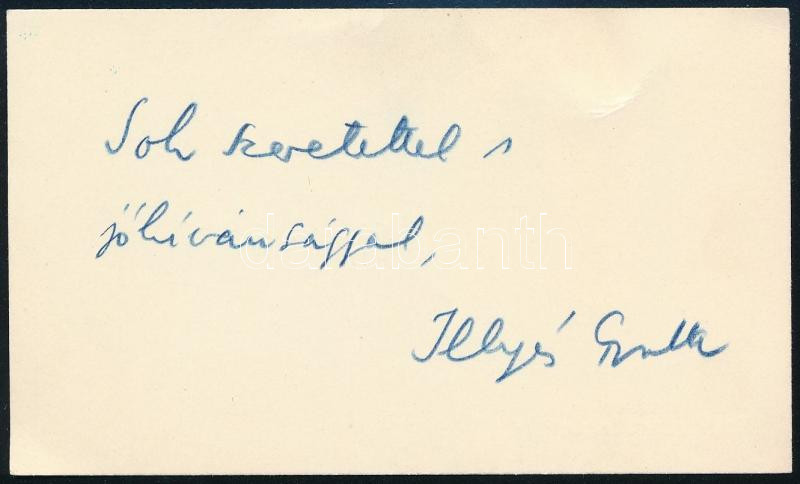 Sok szeretettel s
jókívánsággal,
Illyés Gyula
darabanth